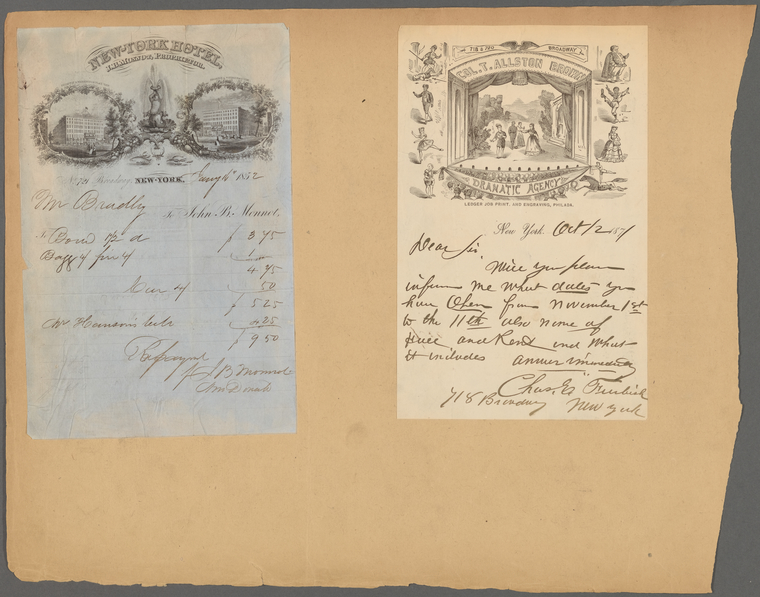 NEW-YORK HOTEL,
J.B. MONNOT, PROPRIETOR.
No. 721 Broadway, NEW-YORK, 1852
Mr Bradly
To John B. Monnot,
To Board
$ 3 75
Bagg
4 75
50
$ 5 25
4 25
$ 9 50
J B Monnot
718 & 720 BROADWAY
COL. T. ALLSTON BROWN
DRAMATIC AGENCY
LEDGER JOB PRINT. AND ENGRAVING, PHILADA.
New York. Oct 12 1871
Dear Sir.
Will you please
inform me what dates you
have Open from November 1st
to the 11th also name of
Hall and Rent and what
it includes answer immediately
Chas. E.
718 Broadway New York